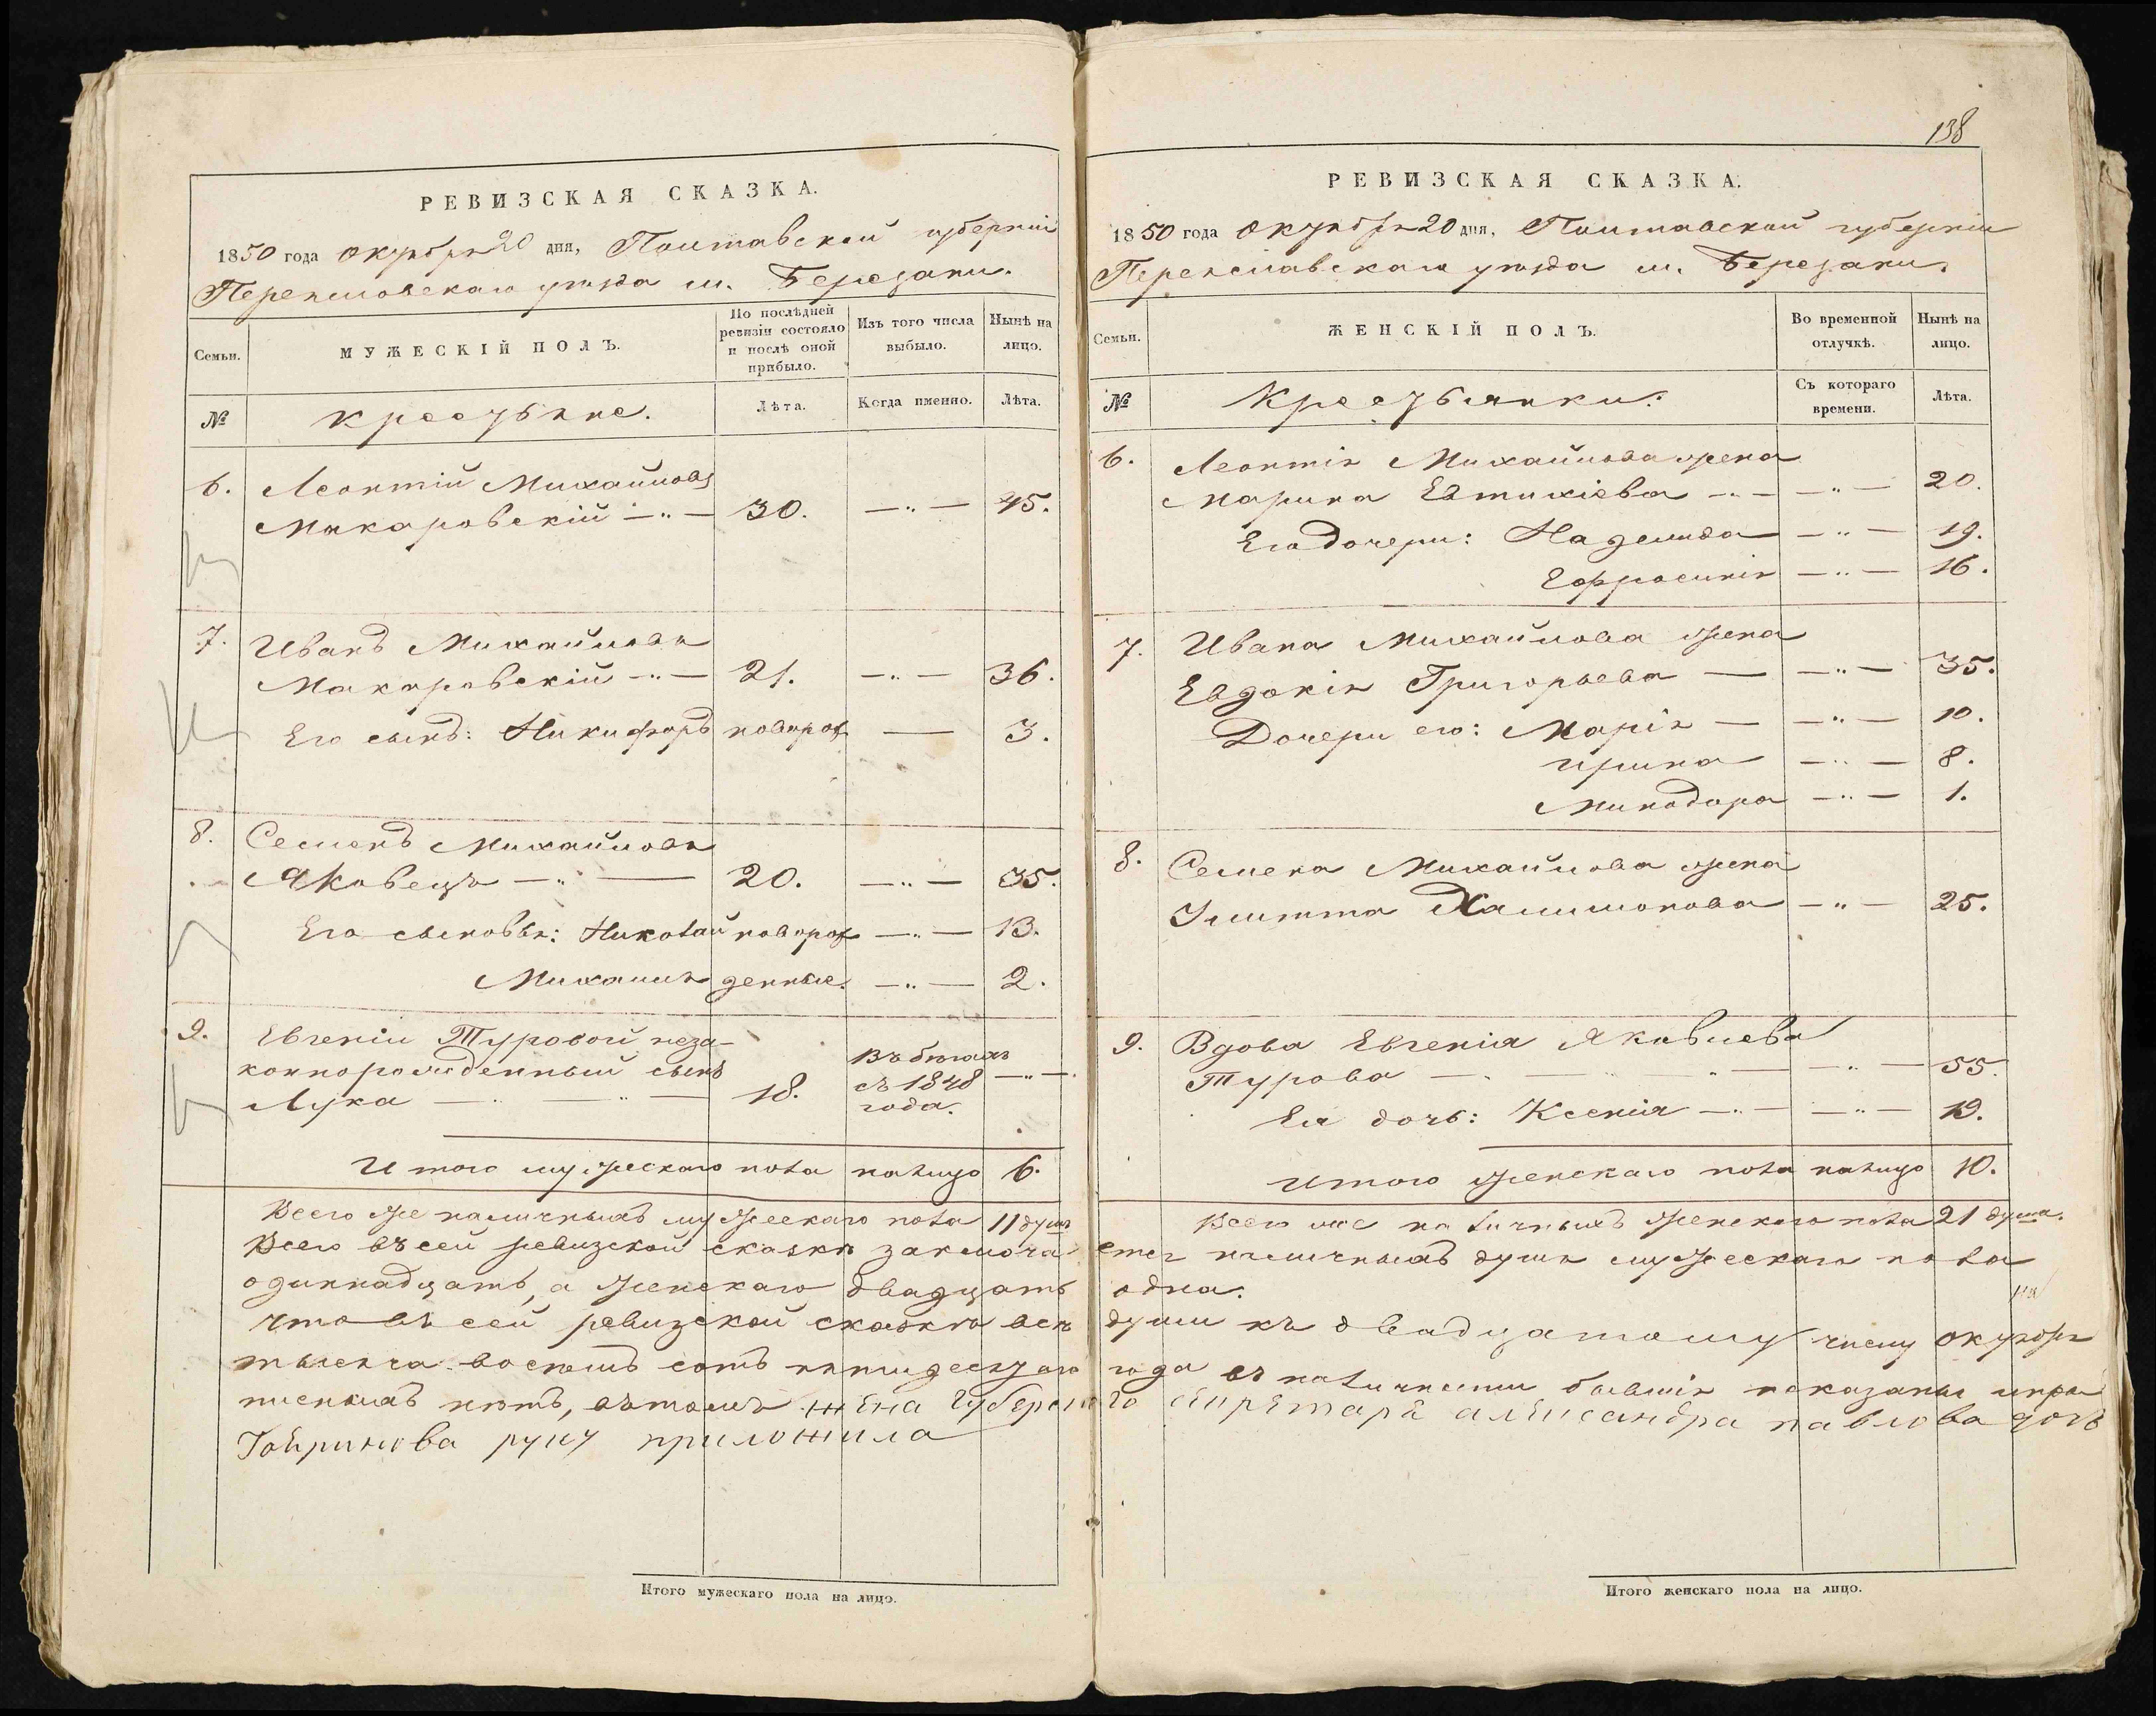 РЕВИЗСКАЯ СКАЗКА.
1850 года октября 20 дня, Полтавской губерніи
Переяславскаго уѣзда м. Березани.
Семьи.
МУЖЕСКІЙ ПОЛЪ.
По послѣдней ревизіи состояло и послѣ оной прибыло.
Изъ того числа выбыло.
Нынѣ на лицо.
№
крестьяне.
Лѣта.
Когда именно.
Лѣта.
6. Леонтій Михайловъ
Макаровскій —„— 30. —„— 45.
7. Иванъ Михайловъ
Макаровскій —„— 21. —„— 36.
Его сынъ: Никифоръ новорож — 3.
8. Семенъ Михайловъ
Яковецъ —„— 20. —„— 35.
Его сыновья: Николай новорож —„— 13.
Михаилъ денные. —„— 2.
9. Евгеніи Туровой неза-
коннорожденный сынъ
Лука —„—„— 18. Въ бѣгахъ съ 1848 года. —„—
Итого мужескаго пола налицо 6.
Всего же наличныхъ мужескаго пола 11 душъ
138
РЕВИЗСКАЯ СКАЗКА.
1850 года октября 20 дня, Полтавской губерніи
Переяславскаго уѣзда м. Березани.
Семьи.
ЖЕНСКІЙ ПОЛЪ.
Во временной отлучкѣ.
Нынѣ на лицо.
№
Крестьянки.
Съ котораго времени.
Лѣта.
6. Леонтія Михайлова жена
Марина Евтихіева —„— —„— 20.
Его дочери: Надежда —„— 19.
Ефросинія —„— 16.
7. Ивана Михайлова жена
Евдокія Григорьева — —„— 35.
Дочери его: Марія — —„— 10.
Ирина —„— 8.
Минодора —„— 1.
8. Семена Михайлова жена
Улитта —„— 25.
9. Вдова Евгенія Яковлева
Турова —„—„— —„— 55.
Ея дочь: Ксенія —„— —„— 19.
Итого женскаго пола налицо 10.
Всего же наличныхъ женскаго пола 21 душа.
Всего въ сей ревизской сказкѣ заключается наличныхъ душъ мужескаго пола
одиннадцать, а женскаго двадцать одна.
что въ сей ревизской сказкѣ всѣ души къ двадцатому числу октября
тысяча восемь сотъ пятидесятого года въ наличности бывшія показаны и
писныхъ нѣтъ, въ томъ жена Губернского секретаря александра павлова дочь
руку приложила
Итого мужескаго пола на лицо.
Итого женскаго пола на лицо.